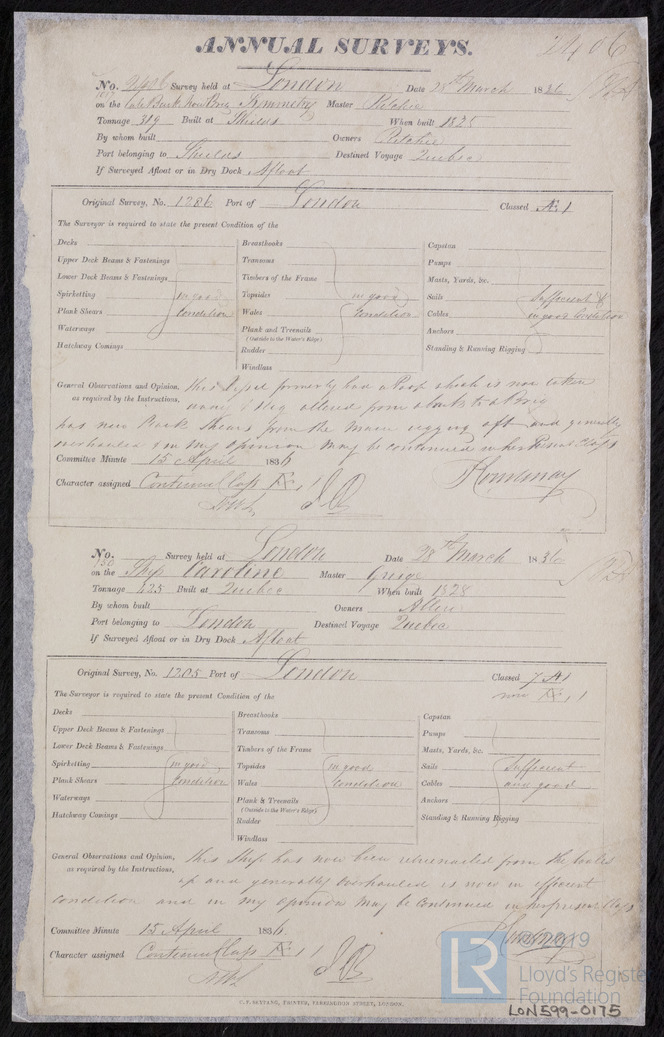 ANNUAL SURVEYS. 2406
No. 2406 Survey held at London Date 28th March 1836
on the late Bark now Brig Master Ritchie
Tonnage 319 Built at Shields When built 1825
By whom built Owners Ritchie
Port belonging to Shields Destined Voyage Quebec
If Surveyed Afloat or in Dry Dock Afloat
Original Survey, No. 1286 Port of London Classed Æ 1
The Surveyor is required to state the present Condition of the
Decks
Upper Deck Beams & Fastenings
Lower Deck Beams & Fastenings
Spirketting in good
Plank Shears Condition
Waterways
Hatchway Comings
Breasthooks
Transoms
Timbers of the Frame
Topsides in good
Wales Condition
Plank and Treenails
(Outside to the Water's Edge)
Rudder
Windlass
Capstan
Pumps
Masts, Yards, &c.
Sails Sufficient &
Cables in good Condition
Anchors
Standing & Running Rigging
General Observations and Opinion, This Vessel formerly had a Poop which is now taken
as required by the Instructions, away & Rig altered from a Bark to a Brig
has new Plank Shears from the Main rigging aft and generally
overhauled & in my opinion may be continued in her Present Class
Committee Minute 15 April 1836
Character assigned Continued Class Æ 1
No. 130 Survey held at London Date 28th March 1836
on the Ship Caroline Master Greig
Tonnage 425 Built at Quebec When built 1828
By whom built Owners Allen
Port belonging to London Destined Voyage Quebec
If Surveyed Afloat or in Dry Dock Afloat
Original Survey, No. 1205 Port of London Classed 7 A 1
now Æ 1
The Surveyor is required to state the present Condition of the
Decks
Upper Deck Beams & Fastenings
Lower Deck Beams & Fastenings
Spirketting in good
Plank Shears Condition
Waterways
Hatchway Comings
Breasthooks
Transoms
Timbers of the Frame
Topsides in good
Wales Condition
Plank & Treenails
(Outside to the Water's Edge)
Rudder
Windlass
Capstan
Pumps
Masts, Yards, &c.
Sails Sufficient
Cables and good
Anchors
Standing & Running Rigging
General Observations and Opinion, This Ship has now been retreenailed from the Wales
as required by the Instructions, up and generally Overhauled is now in efficient
condition and in my opinion may be Continued in her present Class
Committee Minute 15 April 1836
Character assigned Continued Class Æ 1
C. F. SEYFANG, PRINTER, FARRINGDON STREET, LONDON.
LR 2019
Lloyd's Register
Foundation
LON599-0175